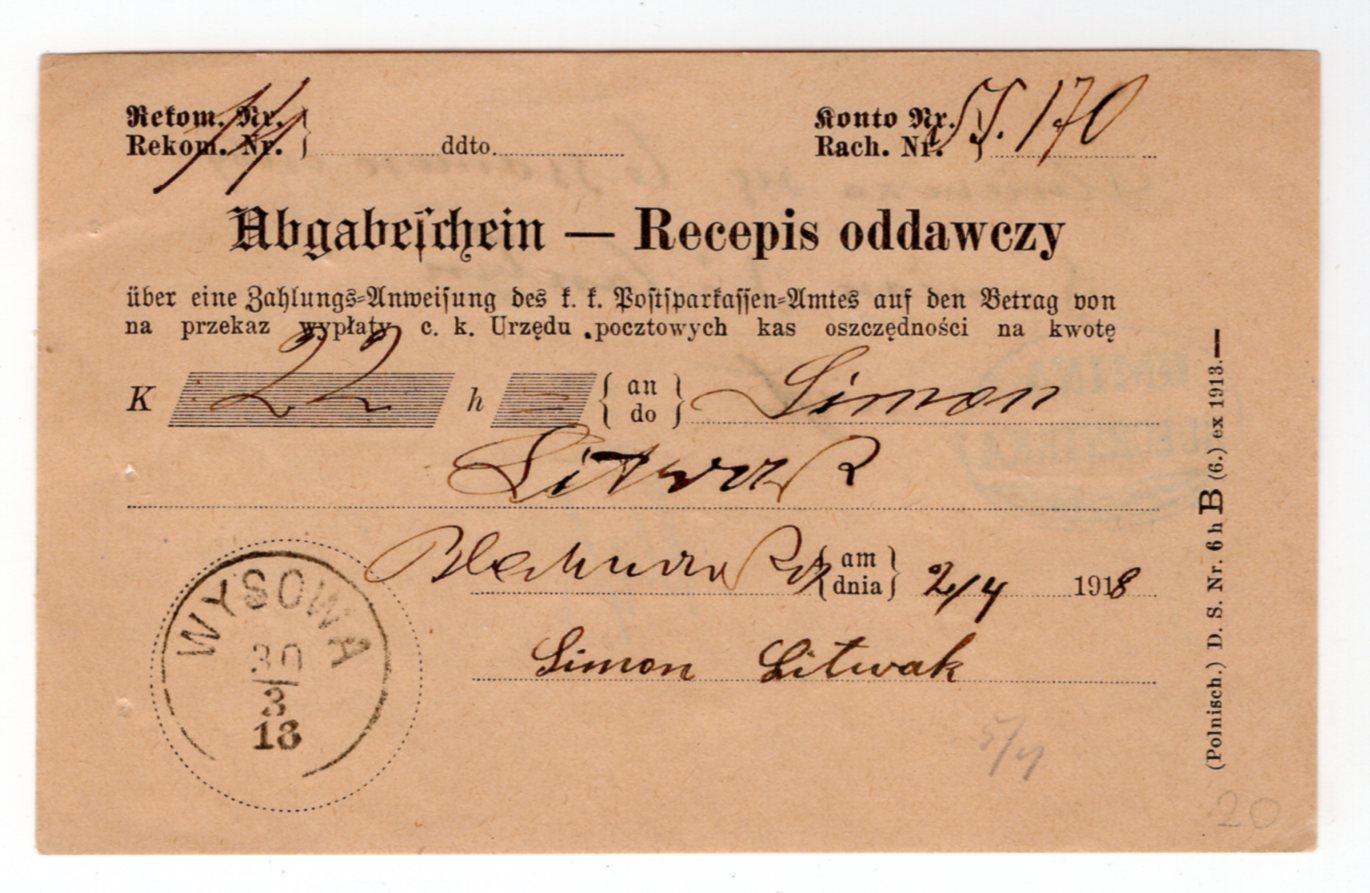 Rekom. Nr.
Rekom. Nr. } ddto
Konto Nr.
Rach. Nr. } 170
Abgabeschein — Recepis oddawczy
über eine Zahlungs-Anweisung des k. k. Postsparkassen-Amtes auf den Betrag von
na przekaz wypłaty c. k. Urzędu pocztowych kas oszczędności na kwotę
K 22 h = { an do } Simon
Litwak
{ am dnia } 2/4 1918
Simon Litwak
WYSOWA
30
3
18
5/4
20
(Polnisch.) D. S. Nr. 6 h B (6.) ex 1913.—